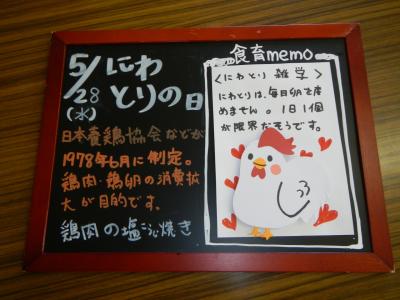 5/28
(水)
にわ
とりの日
日本養鶏協会などが
1978年6月に制定。
鶏肉・鶏卵の消費拡
大が目的です。
鶏肉の塩こうじ焼き
食育memo
〈にわとり 雑学〉
にわとりは、毎日卵を産
めません。1日1個
が限界だそうです。